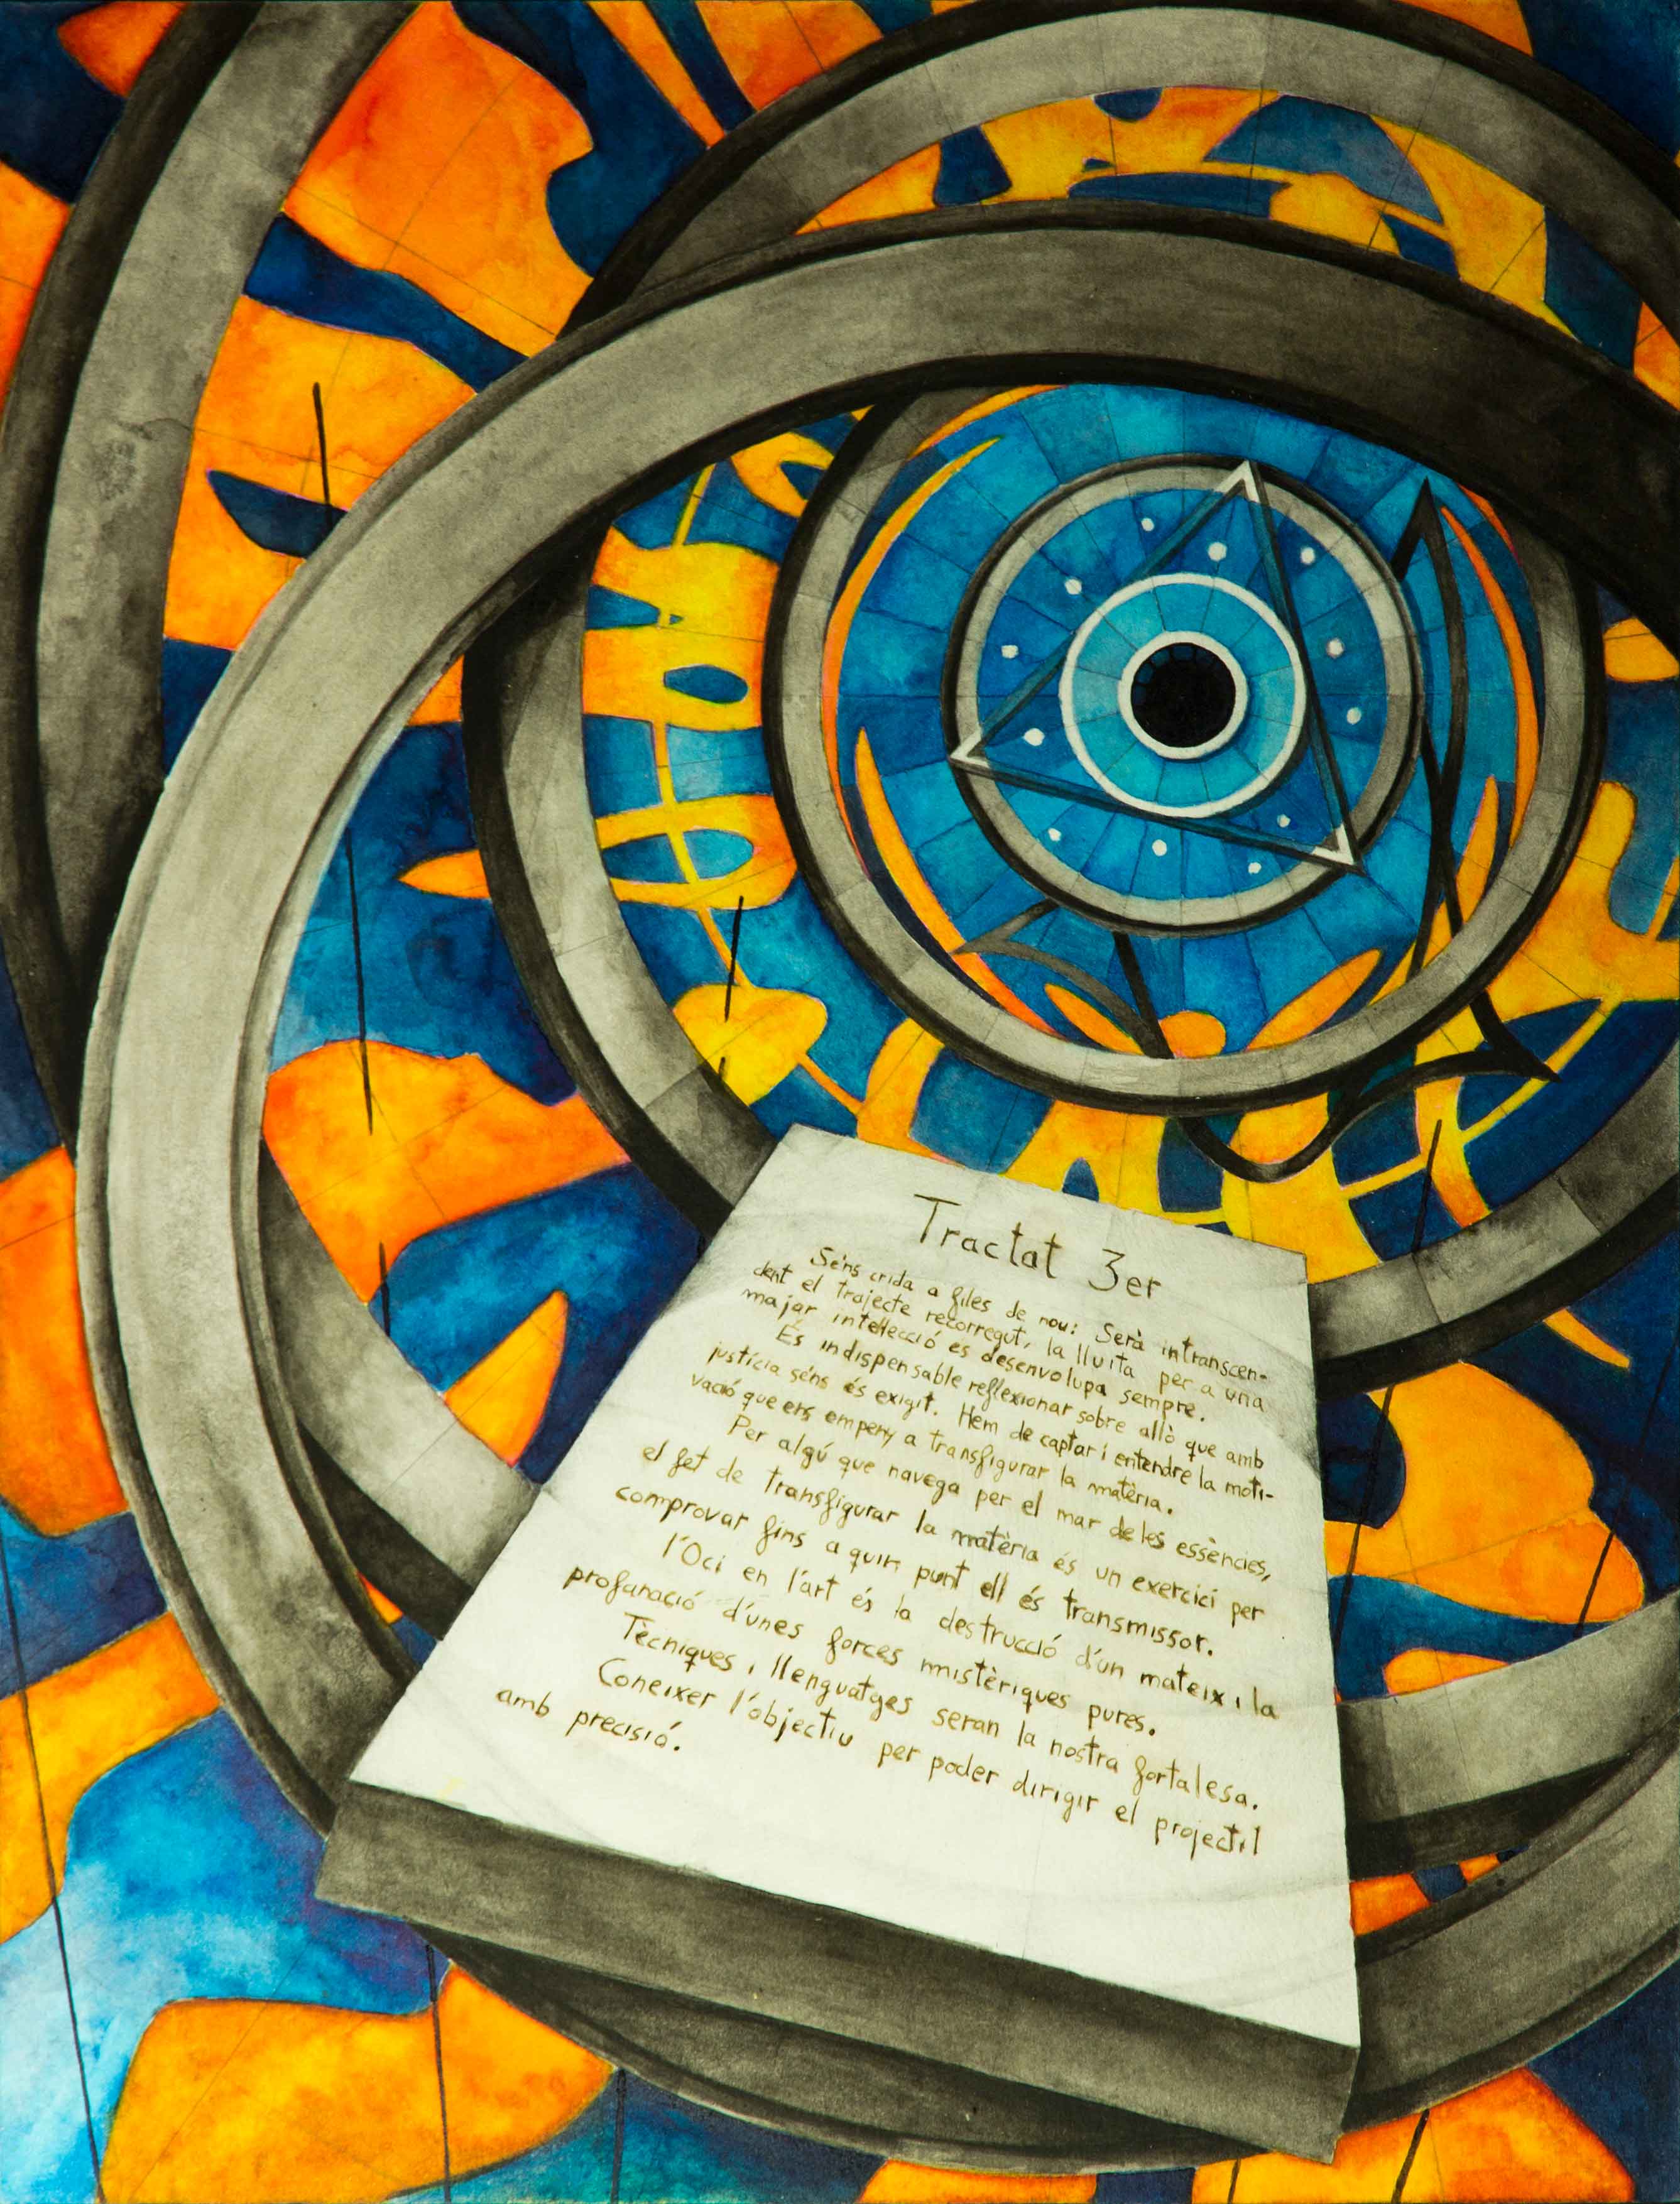 Tractat 3er
Séns crida a files de nou: Serà intranscen-
dent el trajecte recorregut, la lluita per a una
major intel·lecció es desenvolupa sempre.
És indispensable reflexionar sobre allò que amb
justícia séns és exigit. Hem de captar i entendre la moti-
vació que ens empeny a transfigurar la matèria.
Per algú que navega per el mar de les essències,
el fet de transfigurar la matèria és un exercici per
comprovar fins a quin punt ell és transmissor.
l'Oci en l'art és la destrucció d'un mateix i la
profanació d'unes forces mistèriques pures.
Tècniques i llenguatges seran la nostra fortalesa.
Coneixer l'objectiu per poder dirigir el projectil
amb precisió.